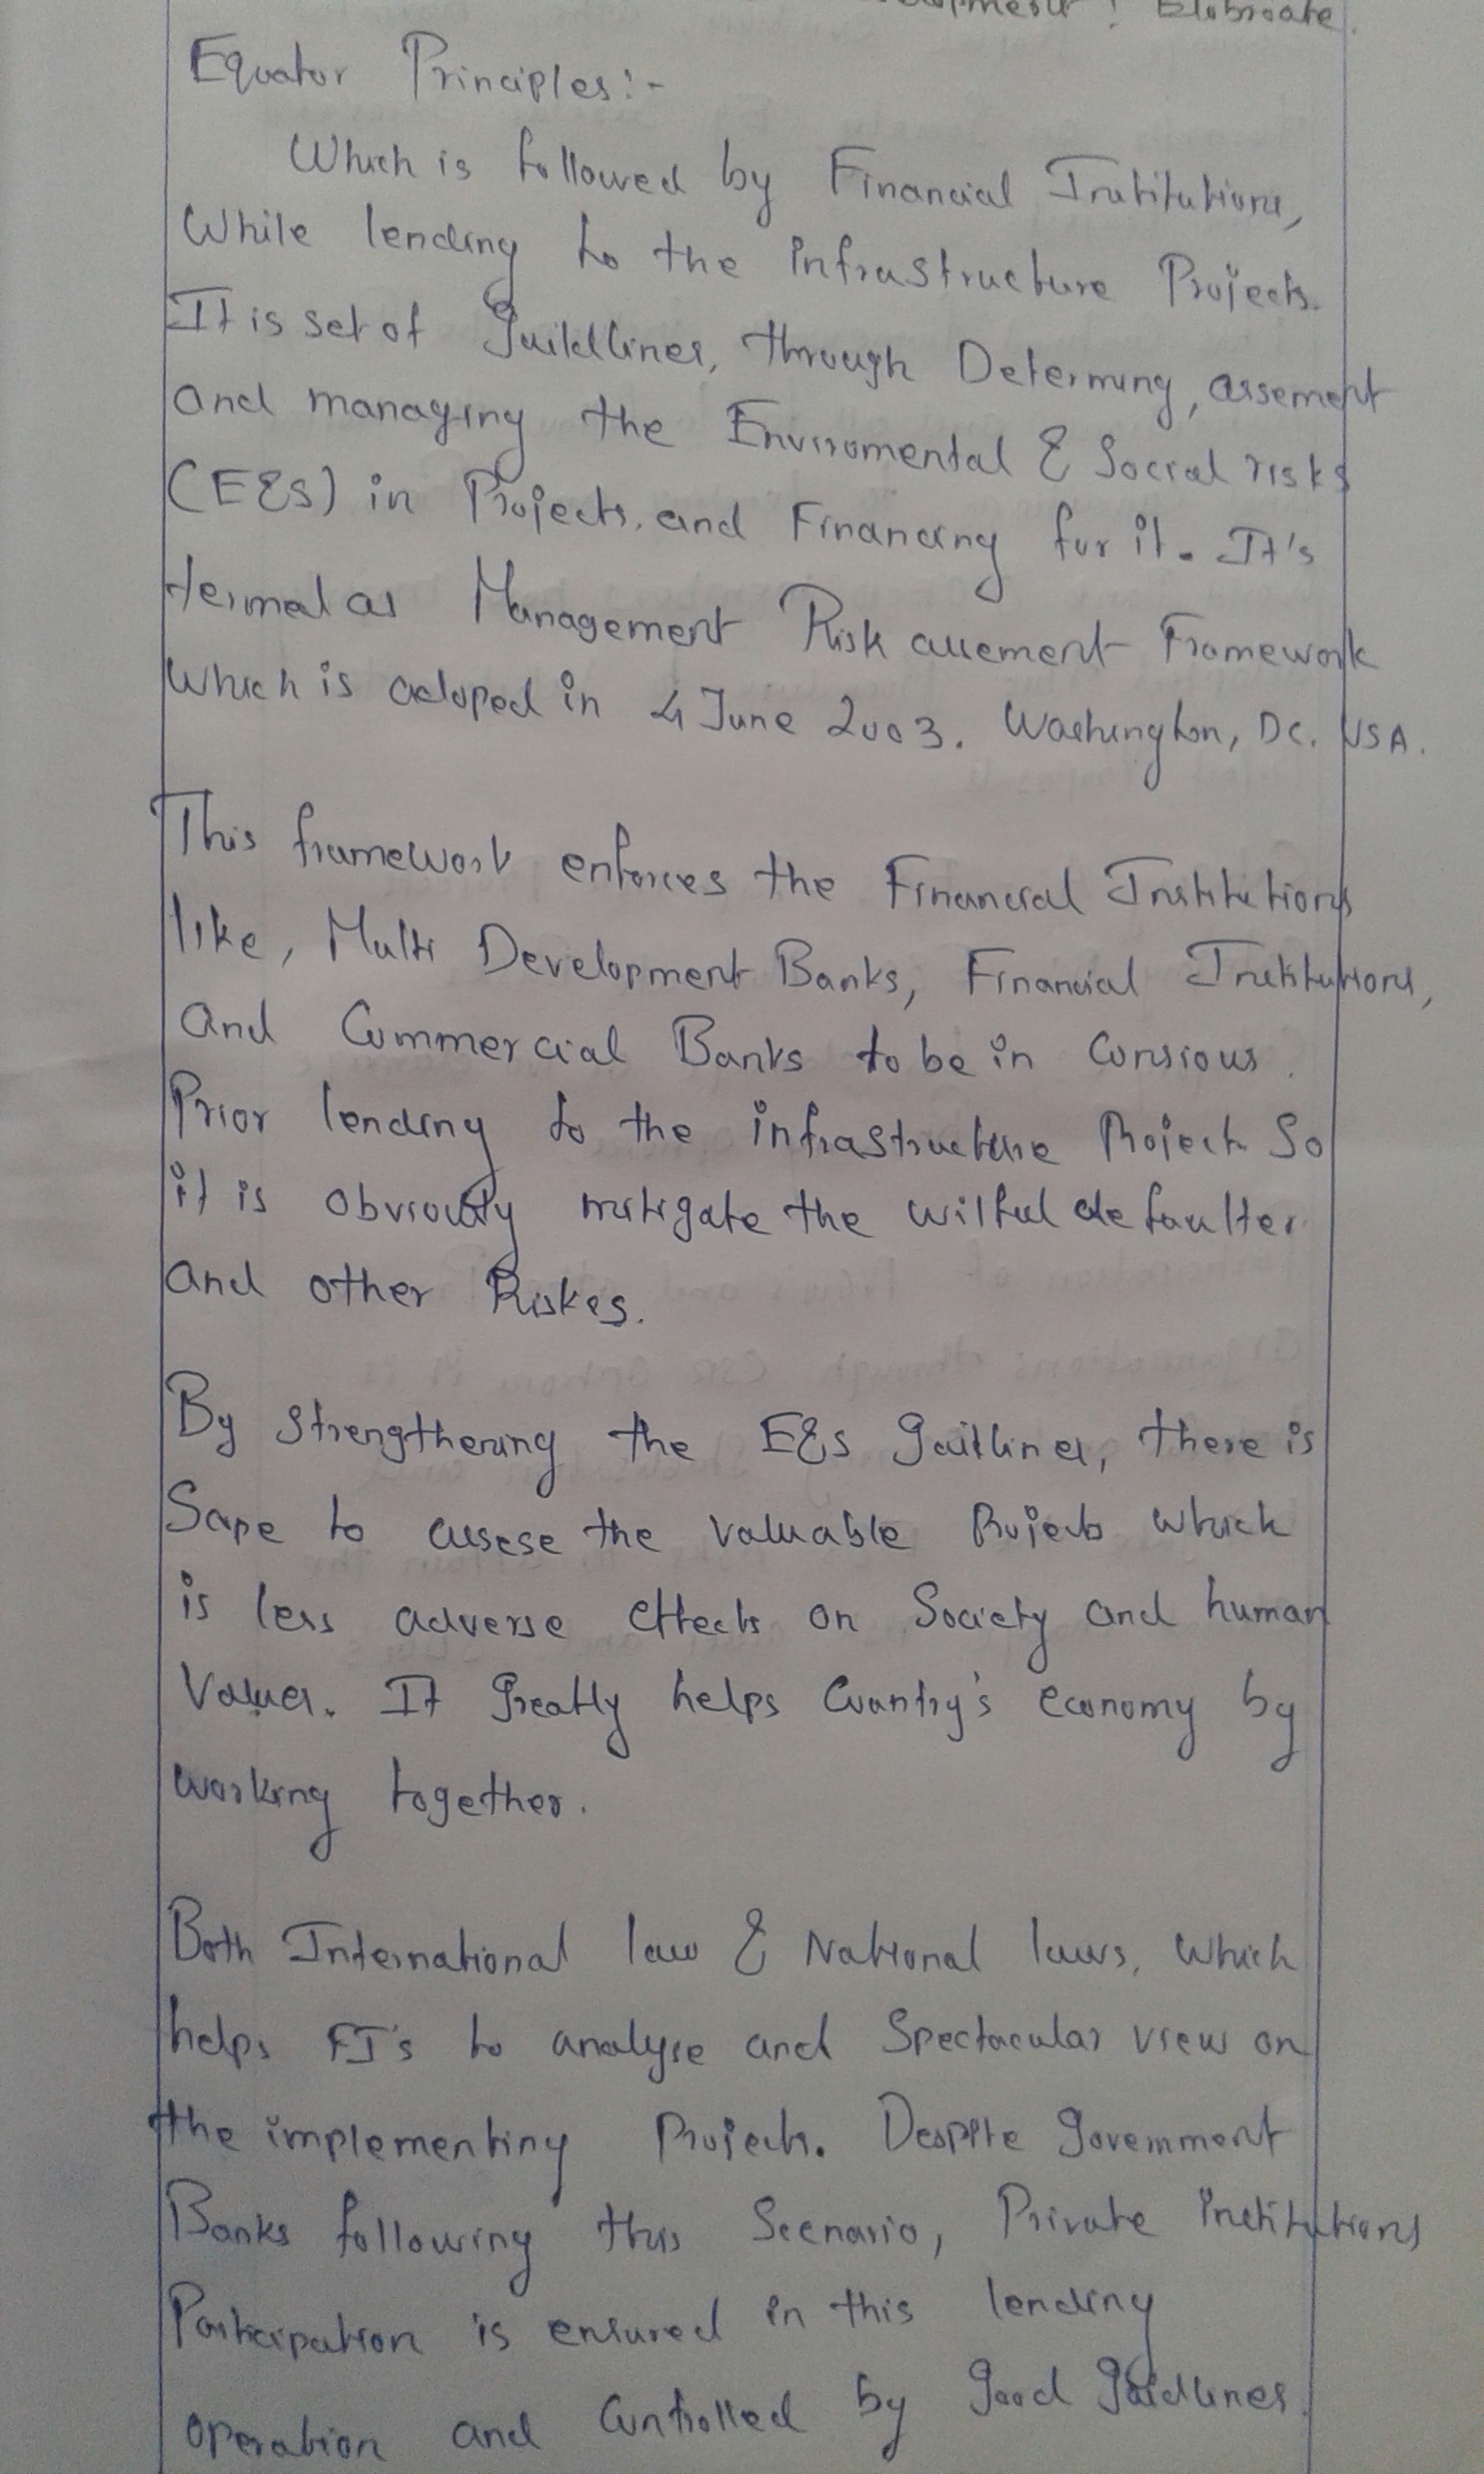 Elobroate.
Equator Principles:-
Which is followed by Financial Institutions,
While lending to the infrastructure Projects.
It is set of guildlines, through Determing, assement
and managing the Enviromental & Social risks
(E&S) in Projects, and Financing for it. It's
termed as Management Risk assement Framework
Which is adoped in 4 June 2003. Washington, DC. USA.
This framework enforces the Financial Institutions
like, Multi Development Banks, Financial Institutions,
and Commercial Banks to be in Consious.
Prior lending to the infrastructure Project. So
it is obviously mitigate the wilful defaulter
and other Riskes.
By strengthening the E&S gaitlines, there is
Scope to assese the valuable Projects which
is less adverse effects on Society and human
Values. It greatly helps Country's economy by
working together.
Both International law & National laws, which
helps FI's to analyse and Spectacular view on
the implementing Projects. Despite government
Banks following this Scenario, Private institutions
Participation is ensured in this lending
operation and Controlled by good guidlines.